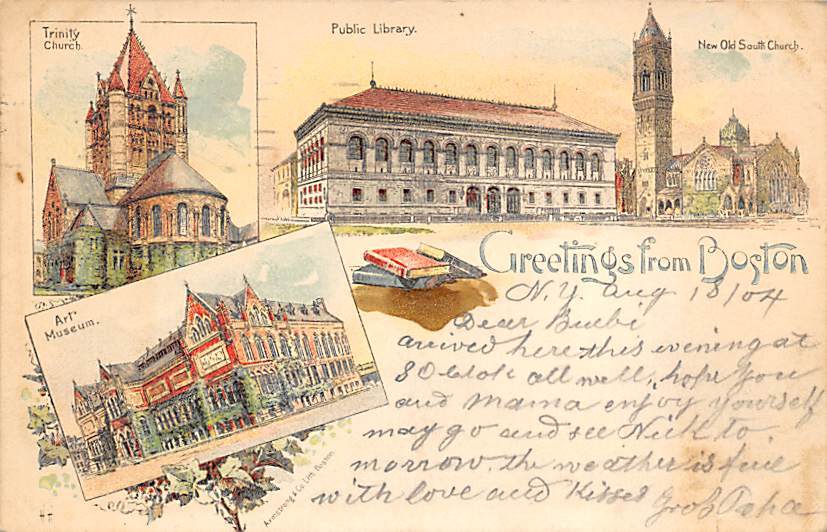 Trinity
Church.
Public Library.
New Old South Church.
Art
Museum.
Armstrong & Co. Lith. Boston.
Greetings from Boston
N.Y. Aug 18/04
Dear Buebi
arrived here this evening at
8 Oclok all well, hope you
and Mama enjoy yourself
may go and see Nick to
morrow. the weather is fine
with love and Kisses